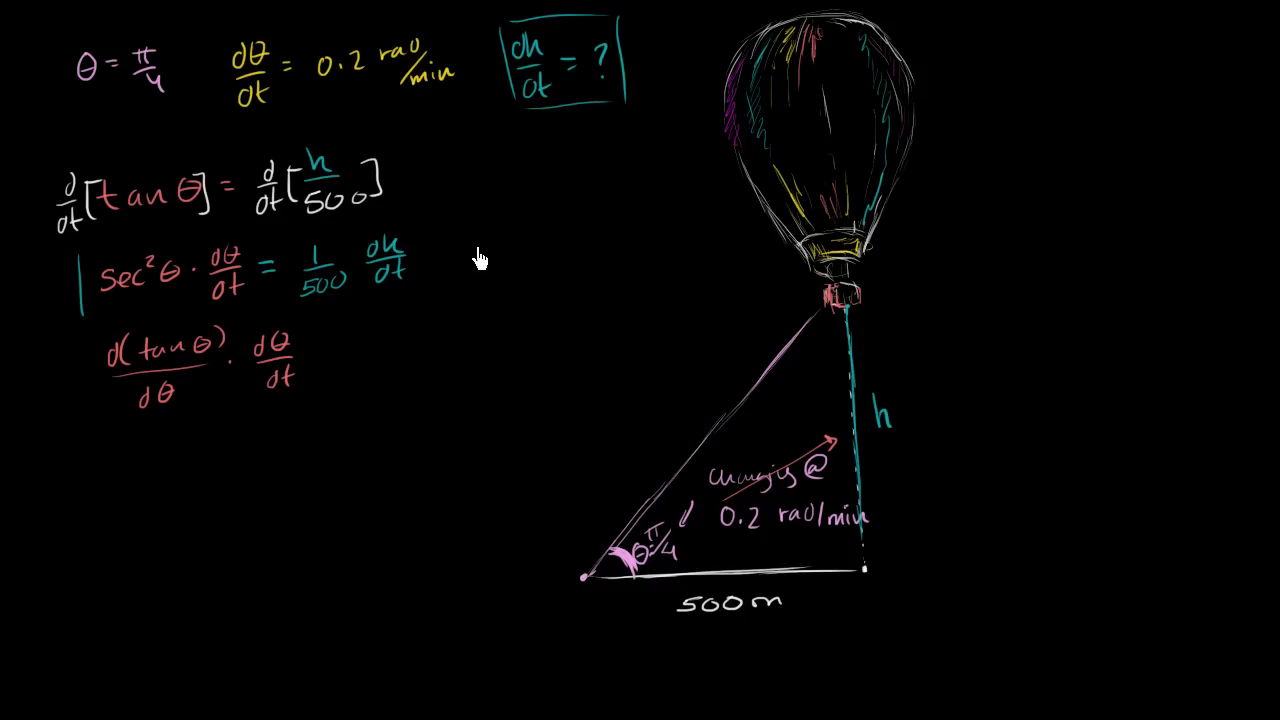 θ = π/4
dθ/dt = 0.2 rad/min
dh/dt = ?
d/dt [tan θ] = d/dt [h/500]
sec² θ · dθ/dt = 1/500 dh/dt
d(tan θ)/dθ · dθ/dt
h
changing @
0.2 rad/min
θ = π/4
500 m